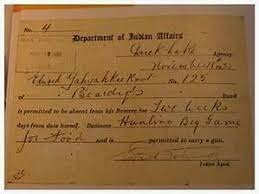 No. 4
Department of Indian Affairs
Duck Lake Agency
November 1932
Edward Yahyahkeekoot No. 123
of Beardy's Band
is permitted to be absent from his Reserve for Two weeks
days from date hereof. Business Hunting Big Game
for food and is permitted to carry a gun.
Indian Agent.